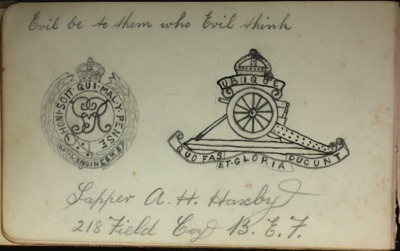 Evil be to them who Evil think
HONI·SOIT·QUI·MAL·Y·PENSE
ROYAL ENGINEERS
UBIQUE
QUO FAS
ET·GLORIA
DUCUNT
Sapper A. H. Haxby
218 Field Coy B. E. F.